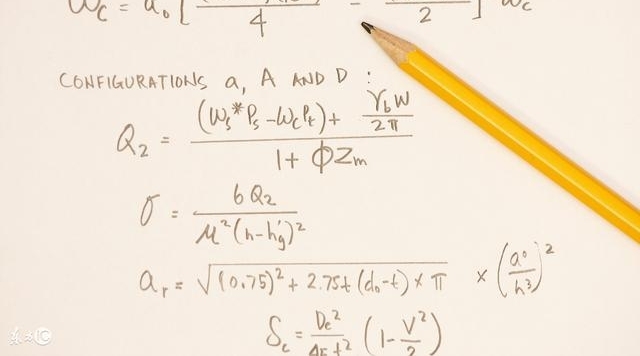 Wc = a₀ [ 4 - 2 ] Wc
CONFIGURATIONS a, A AND D :
Q₂ = ((Ws* Ps - Wc Pt) + γb W / 2π) / (1 + ΦZm)
σ = 6Q₂ / μ²(h-h'g)²
ar = √((0.75)² + 2.75t (d₀-t) × π) × (a⁰/h³)²
Sc = Dc² / t² (1 - V²/2)